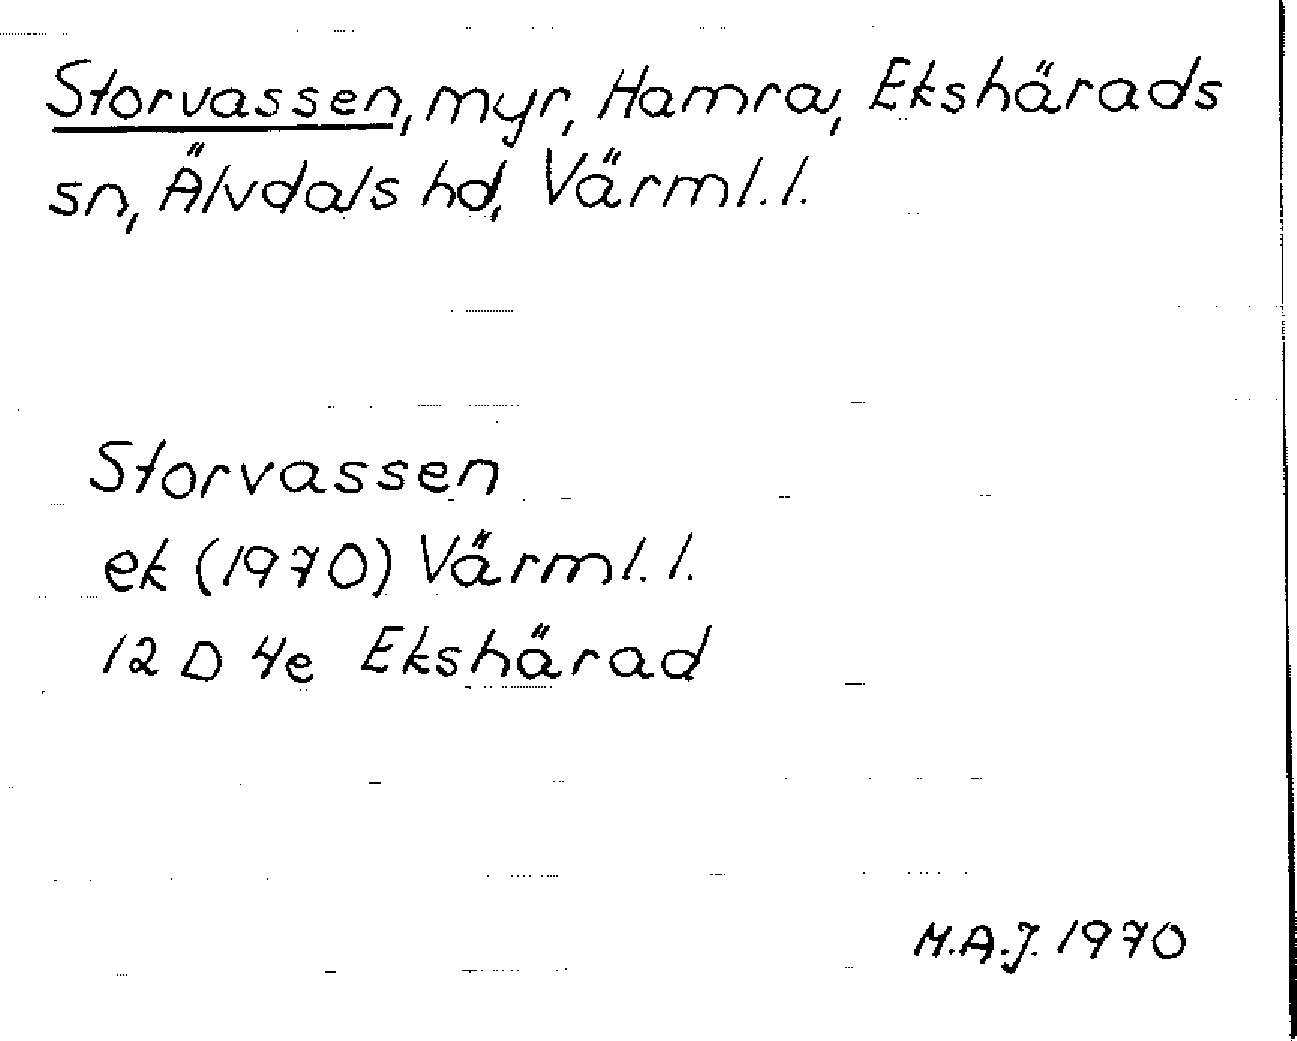 Storvassen, myr, Hamra, Ekshärads
sn, Älvdals hd, Värml. l.
Storvassen
ek (1970) Värml. l.
12 D 4e Ekshärad
M.A.J. 1970